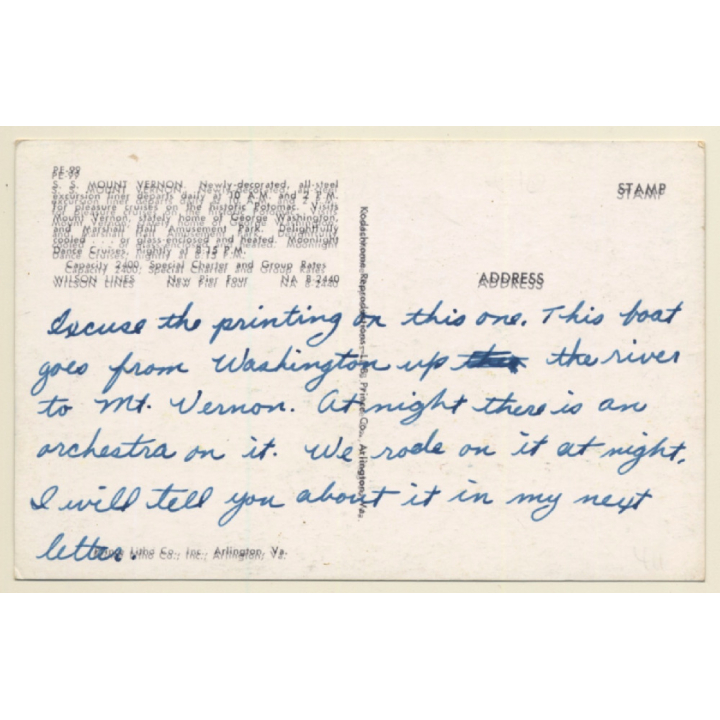 PE-99
S. S. MOUNT VERNON. Newly-decorated, all-steel
excursion liner departs daily at 10 A.M. and 2 P.M.
for pleasure cruises on the historic Potomac. Visits
Mount Vernon, stately home of George Washington,
and Marshall Hall Amusement Park. Delightfully
cooled . . . or glass-enclosed and heated. Moonlight
Dance Cruises, nightly at 8:15 P.M.
Capacity 2400, Special Charter and Group Rates
WILSON LINES New Pier Four NA 8-2440
STAMP
ADDRESS
Kodachrome Reproductions Prince Co., Arlington, Va.
Excuse the printing on this one. This boat
goes from Washington up the river
to Mt. Vernon. At night there is an
orchestra on it. We rode on it at night.
I will tell you about it in my next
letter.
Litho Co., Inc., Arlington, Va.